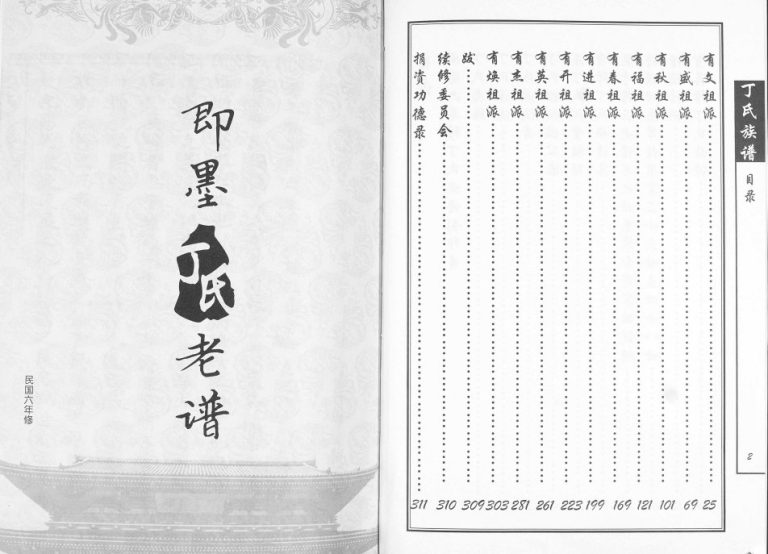 丁氏族谱
目录
2
有文祖派……25
有盛祖派……69
有秋祖派……101
有福祖派……121
有春祖派……169
有进祖派……199
有开祖派……223
有英祖派……261
有杰祖派……281
有焕祖派……303
跋……309
续修委员会……310
捐资功德录……311
即墨丁氏老谱
民国六年修